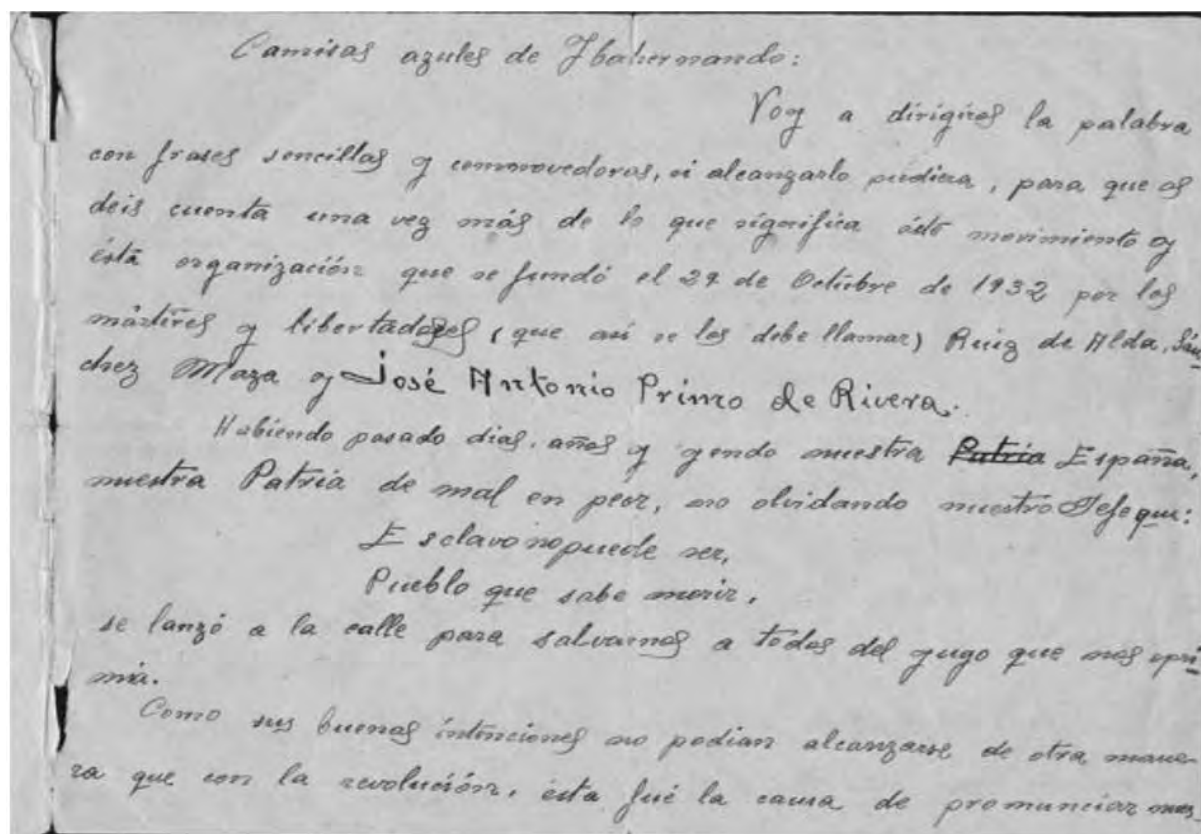 Camisas azules de Ibahernando:
Voy a dirigiros la palabra
con frases sencillas y conmovedoras, si alcanzarlo pudiera, para que os
deis cuenta una vez más de lo que significa éste movimiento y
ésta organización que se fundó el 29 de Octubre de 1932 por los
mártires y libertadores (que así se los debe llamar) Ruiz de Alda, Sán
chez Maza y José Antonio Primo de Rivera.
Habiendo pasado dias, años y yendo nuestra Patria España,
nuestra Patria de mal en peor, no olvidando nuestro Jefe que:
Esclavo no puede ser,
Pueblo que sabe morir,
se lanzó a la calle para salvarnos a todos del yugo que nos opri
mía.
Como sus buenas intenciones no podian alcanzarse de otra mane-
ra que con la revolución, ésta fué la causa de pronunciar nues